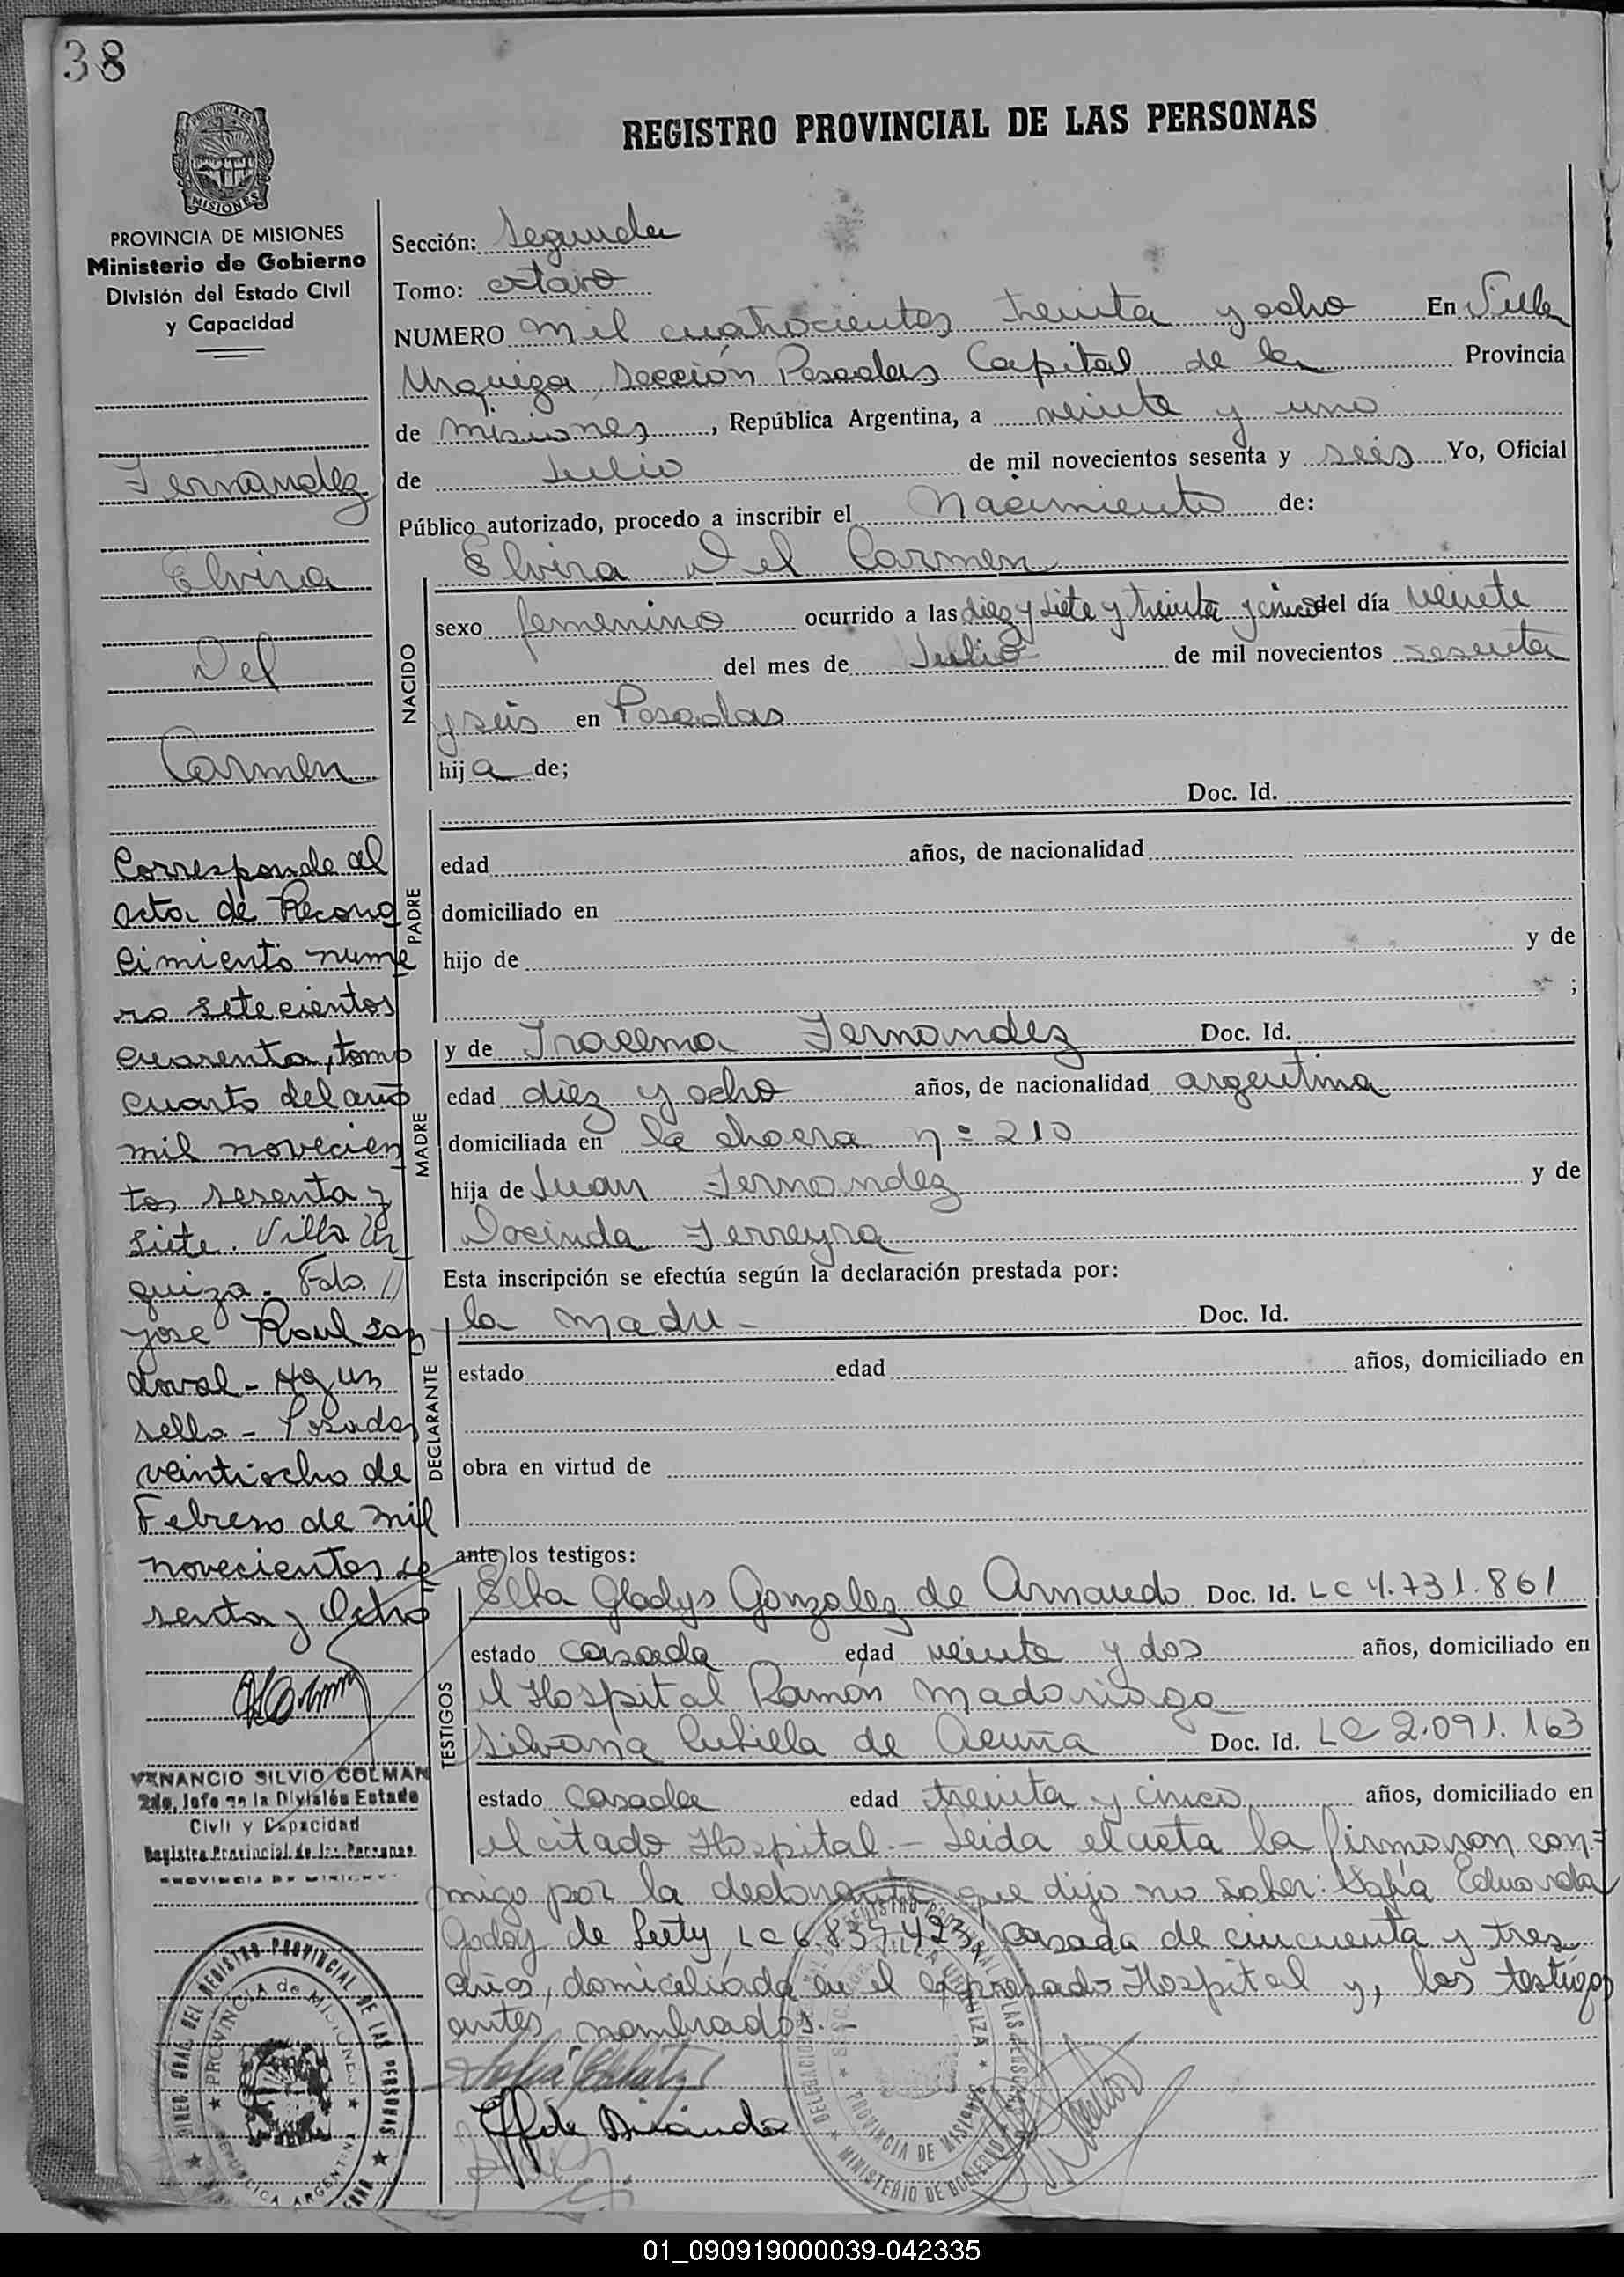 38
REGISTRO PROVINCIAL DE LAS PERSONAS
PROVINCIA DE MISIONES
Ministerio de Gobierno
División del Estado Civil
y Capacidad
Fernandez
Elvira
Del
Carmen
Corresponde al
acta de Recono
cimiento nume
ro setecientos
cuarenta, tomo
cuarto del año
mil novecien
tos sesenta y
siete. Villa Ur
quiza. Fdo.
Jose Raul San
doval - Hay un
sello - Posadas
veintiocho de
Febrero de mil
novecientos se
senta y Ocho
VENANCIO SILVIO COLMAN
2do. Jefe de la División Estado
Civil y Capacidad
Registro Provincial de las Personas
PROVINCIA DE MISIONES
Sección: Segunda
Tomo: octavo
NUMERO mil cuatrocientos treinta y ocho En Villa
Urquiza Sección Posadas Capital de la Provincia
de misiones, República Argentina, a veinte y uno
de Julio de mil novecientos sesenta y seis Yo, Oficial
Público autorizado, procedo a inscribir el Nacimiento de:
Elvira Del Carmen
NACIDO
sexo femenino ocurrido a las diez y siete y treinta y cinco del día veinte
del mes de Julio de mil novecientos sesenta
y seis en Posadas
hija de;
PADRE
Doc. Id.
edad años, de nacionalidad
domiciliado en
hijo de y de
;
MADRE
y de Iracema Fernandez Doc. Id.
edad diez y ocho años, de nacionalidad argentina
domiciliada en la chacra nº 210
hija de Juan Fernandez y de
Docinda Ferreyra
Esta inscripción se efectúa según la declaración prestada por:
DECLARANTE
la madre - Doc. Id.
estado edad años, domiciliado en
obra en virtud de
ante los testigos:
TESTIGOS
Elba Gladys Gonzalez de Doc. Id. LC 4.731.861
estado casada edad veinte y dos años, domiciliado en
el Hospital Ramón Madariaga
Silvana de Acuña Doc. Id. LC 2.091.163
estado casada edad treinta y cinco años, domiciliado en
el citado Hospital. - Leida el acta la firmaron con=
migo por la declarante que dijo no saber: Sofia Eduarda
Godoy de LC casada de cincuenta y tres
años, domiciliada en el expresado Hospital y, los testigos
antes nombrados.
DIREC. GRAL. DEL REGISTRO PROVINCIAL DE LAS PERSONAS
PROVINCIA de MISIONES
REPUBLICA ARGENTINA
PROVINCIA DE MISIONES
MINISTERIO DE GOBIERNO
01_090919000039-042335